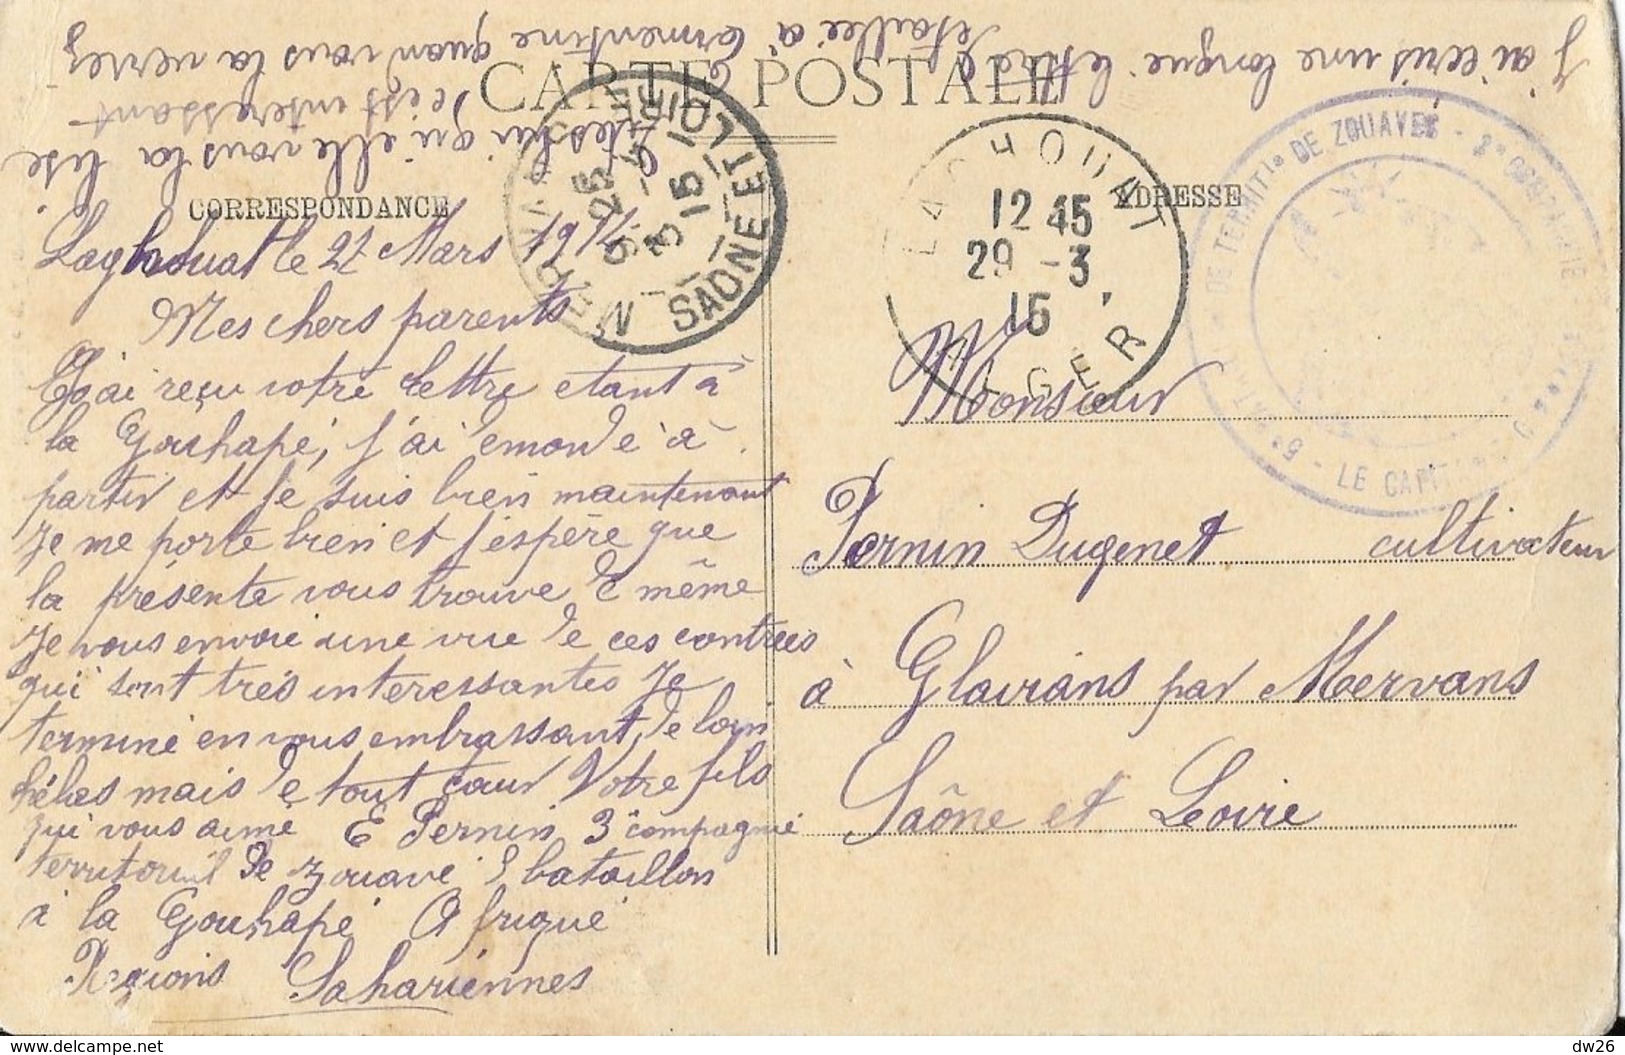 J'ai ecris une longue lettre
detaillée à Lormentine quan vous la verrez
dites lui qu'elle vous la lise
c'est interessant
CARTE POSTALE
CORRESPONDANCE
ADRESSE
Laghouat le 27 Mars 191
Mes chers parents
J'ai reçu votre lettre etant à
la Gouhapé, j'ai emondé à
partir et je suis bien maintenant
Je me porte bien et j'espère que
la présente vous trouve de même
Je vous envoie une vue de ces contrées
qui sont très interessantes Je
terminé en vous embrassant de loin
hélas mais de tout cœur Votre fils
qui vous aime E Pernin 3e compagnie
territorial de zouave 5 bataillon
à la Gouhapé Afrique
Regions Sahariennes
Monsieur
Pernin Dugenet cultivateur
à Glairans par Mervans
Saône et Loire
LAGHOUAT
12 45
29 -3
15
ALGER
MERVANS
9 25
3 -4
15
SAONE ET LOIRE
DE TERRIT DE ZOUAVES - 3e COMPAGNIE
LE CAPITAINE
dw26